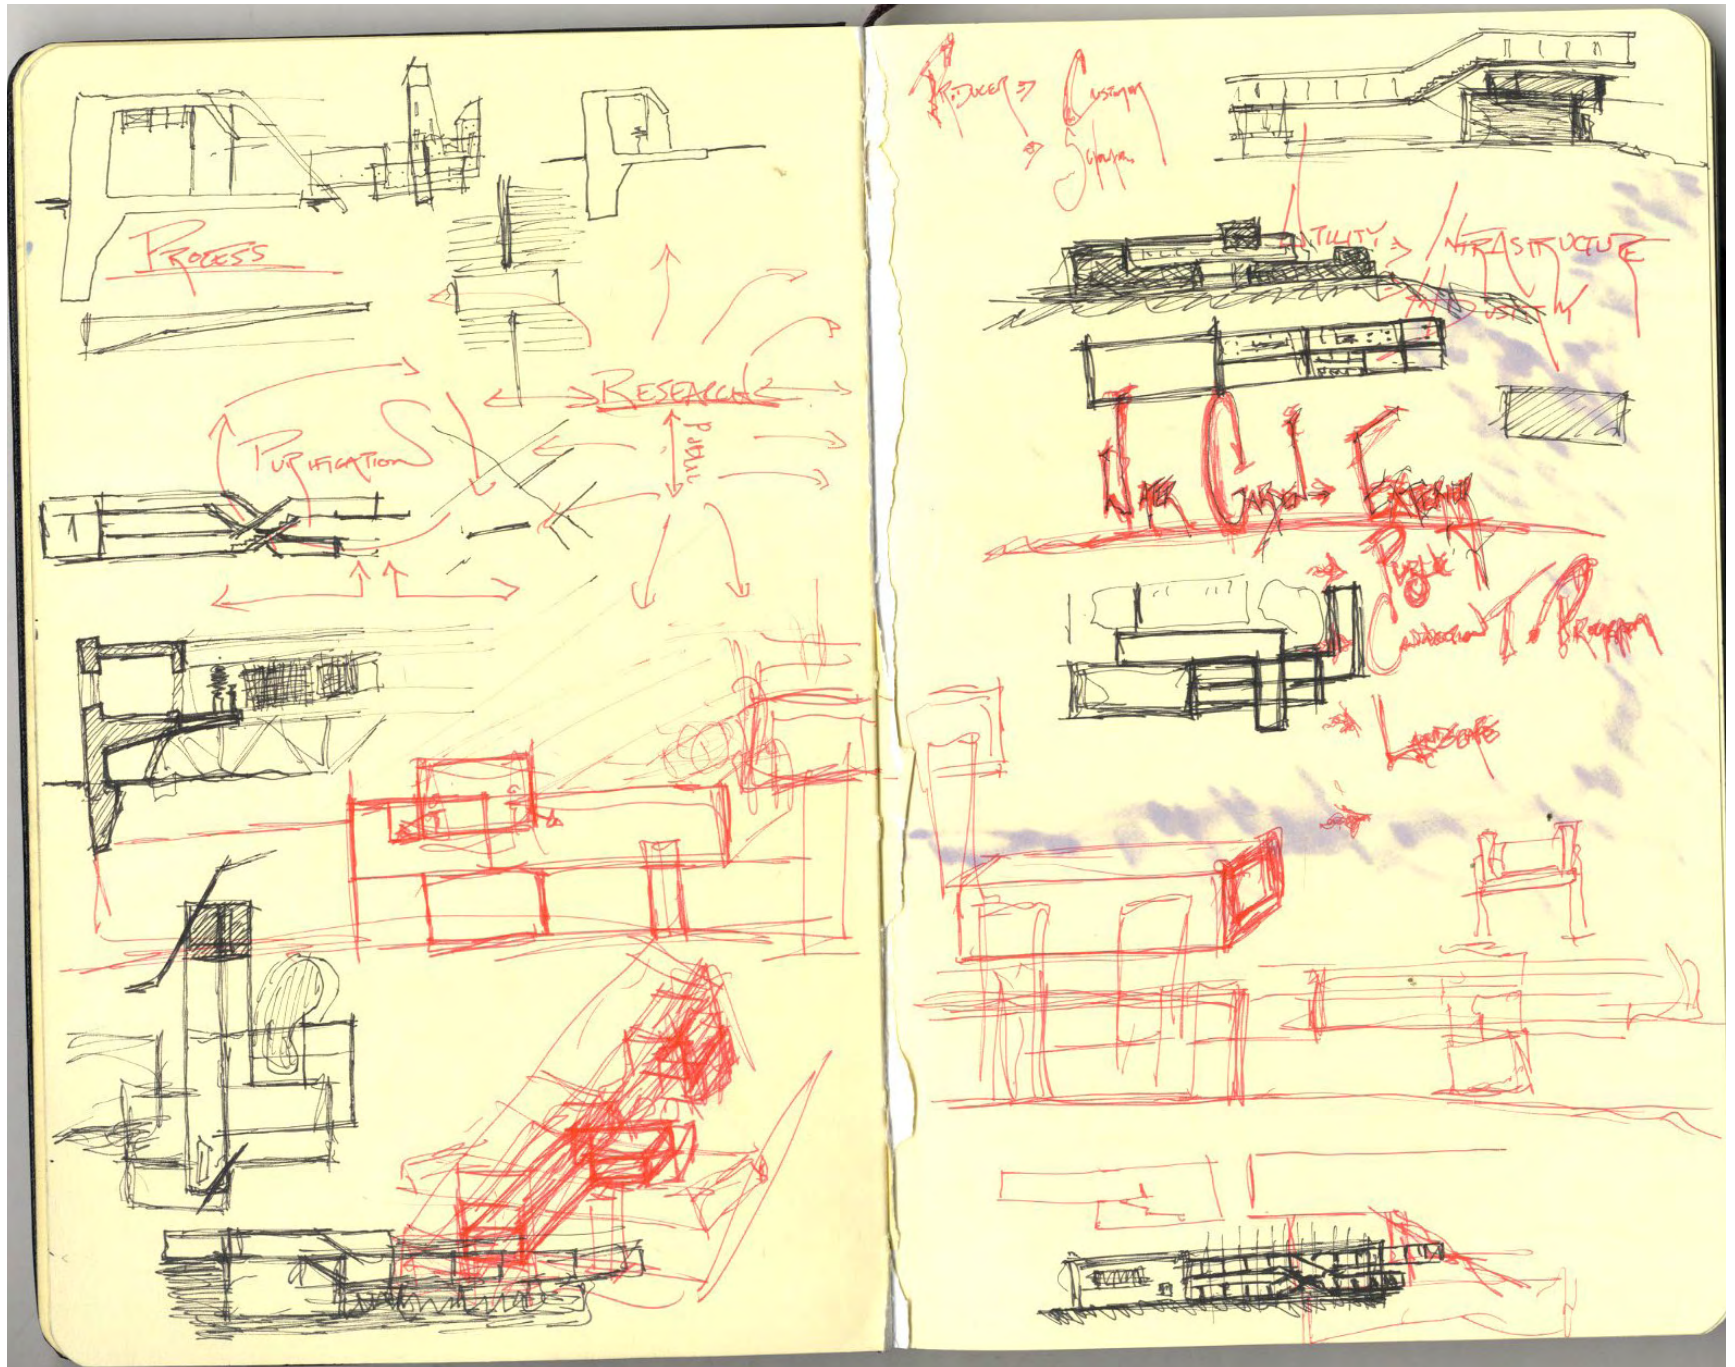 PROCESS
PURIFICATION
RESEARCH
PUBLIC
PRODUCER ⇒ CUSTOMER
UTILITY ⇒ INFRASTRUCTURE
INDUSTRY
WATER GARDEN ⇒ EXTERIOR
PUBLIC
CONNECTION TO PROGRAM
LANDSCAPE